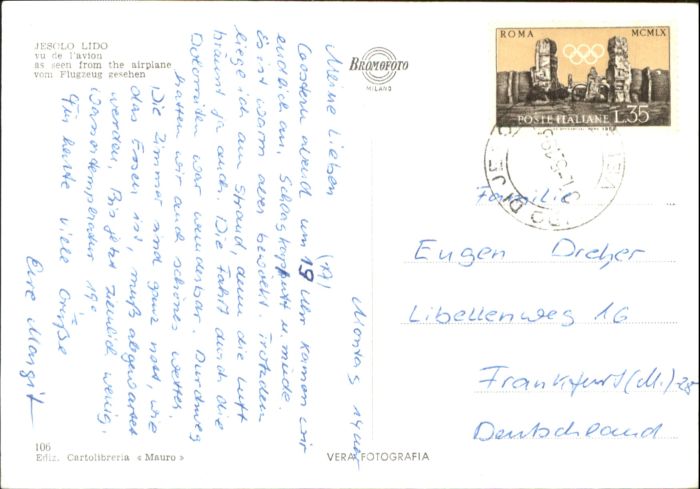 JESOLO LIDO
vu de l'avion
as seen from the airplane
vom Flugzeug gesehen
BROMOFOTO
MILANO
ROMA MCMLX
POSTE ITALIANE L.35
Montag 14 Uhr
Meine Lieben (17)
Gestern abend um 19 Uhr kamen wir
endlich an. Schlagkaputt u. müde.
Es ist warm aber bewölkt. Trotzdem
liege ich am Strand, denn die Luft
bräunt ja auch. Die Fahrt durch die
Dolomiten war wunderbar. Durchweg
hatten wir auch schönes Wetter.
Die Zimmer sind ganz nett, wie
das Essen ist, muß abgewartet
werden. Bis jetzt ziemlich wenig.
Wassertemperatur 19°
Für heute viele Grüße
Eure Margit
Familie
Eugen Dreher
Libellenweg 16
Frankfurt (M.) 28
Deutschland
106
Ediz. Cartolibreria « Mauro »
VERA FOTOGRAFIA